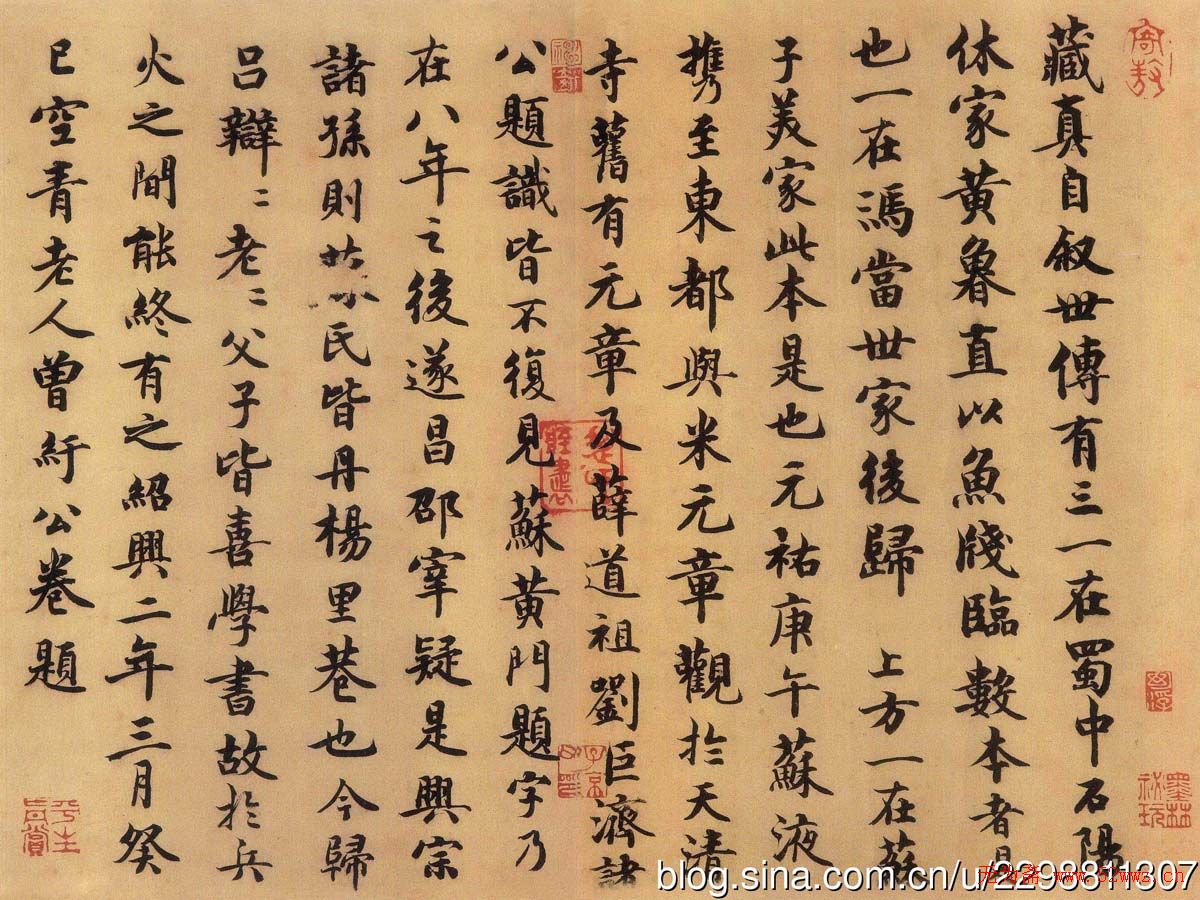 藏真自叙世傳有三一在蜀中石陽
休家黄魯直以魚牋臨數本者是
也一在馮當世家後歸 上方一在蘇
子美家此本是也元祐庚午蘇液
携至東都與米元章觀於天清
寺舊有元章及薛道祖劉巨濟諸
公題識皆不復見蘇黄門題字乃
在八年之後遂昌邵宰疑是興宗
諸孫則氏皆丹楊里巷也今歸
吕辯〻老〻父子皆喜學書故於兵
火之間能終有之紹興二年三月癸
巳空青老人曾紆公卷題
墨林祕玩
平生真賞
blog.sina.com.cn/u/2298811307